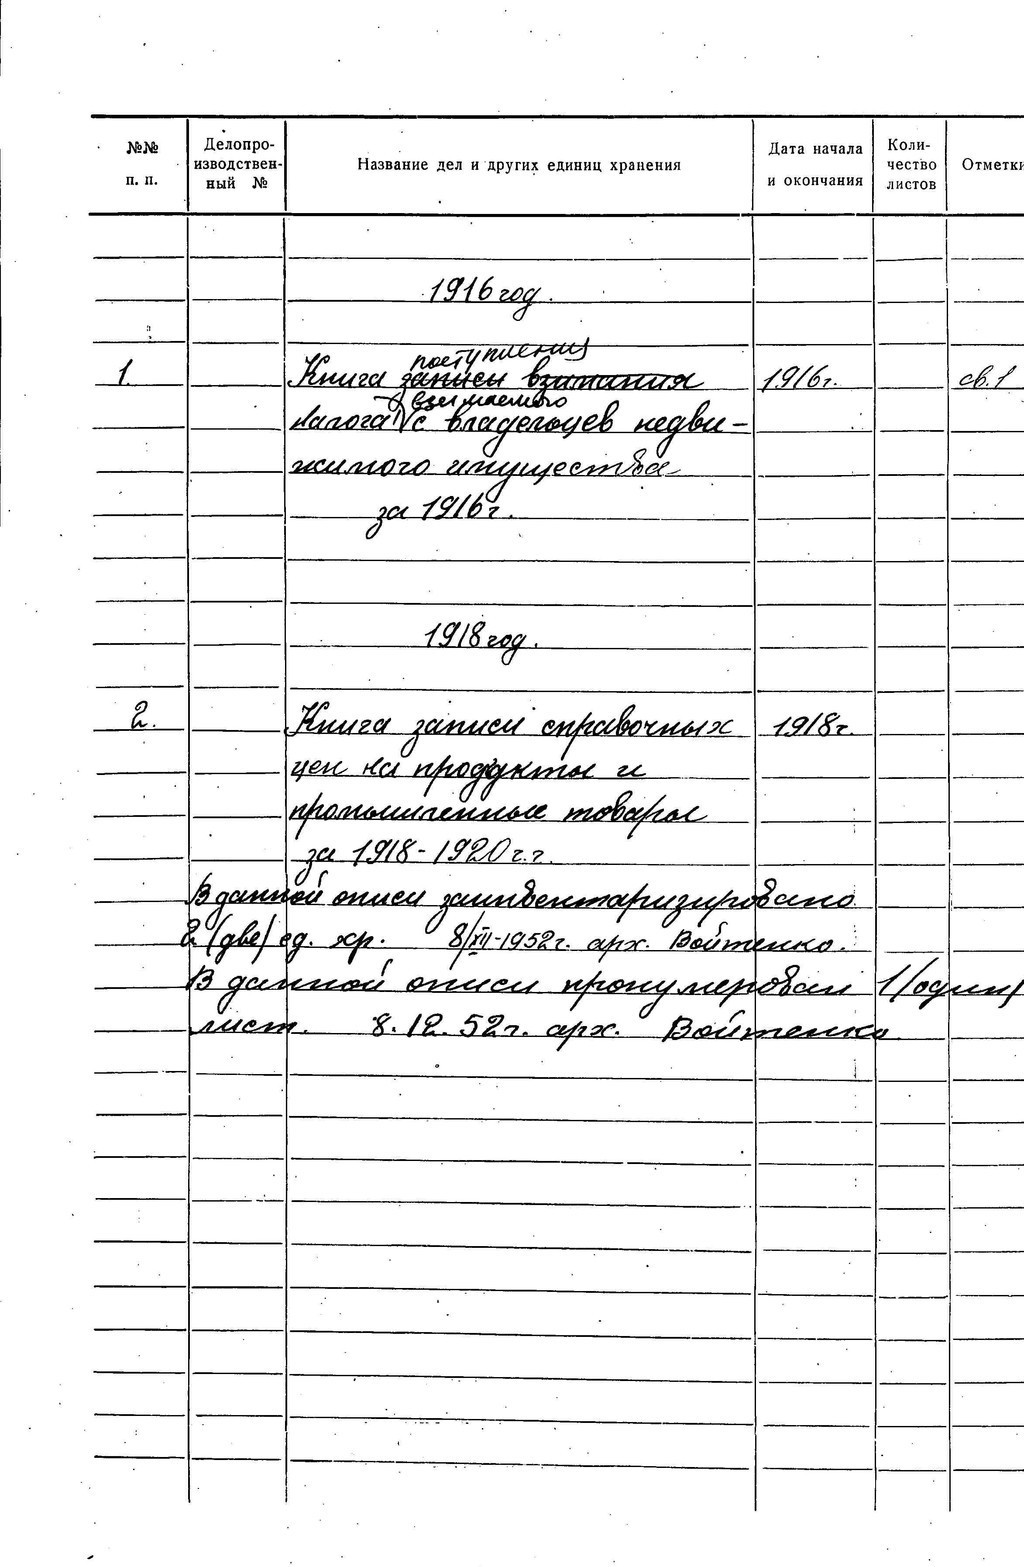 №№ п. п.
Делопро-
изводствен-
ный №
Название дел и других единиц хранения
Дата начала
и окончания
Коли-
чество
листов
Отметки
1916 год.
поступления
1. Книга записи взимания 1916г. св. 1
взымаемого
налога с владельцев недви-
жимого имущества
за 1916г.
1918 год.
2. Книга записи справочных 1918г.
цен на продукты и
промышленные товары
за 1918-1920 г.г.
В данной описи заинвентаризировано
2 (две) ед. хр. 8/XII-1952г. арх. Войтенко.
В данной описи пронумерован 1 (один)
лист. 8.12.52г. арх. Войтенко